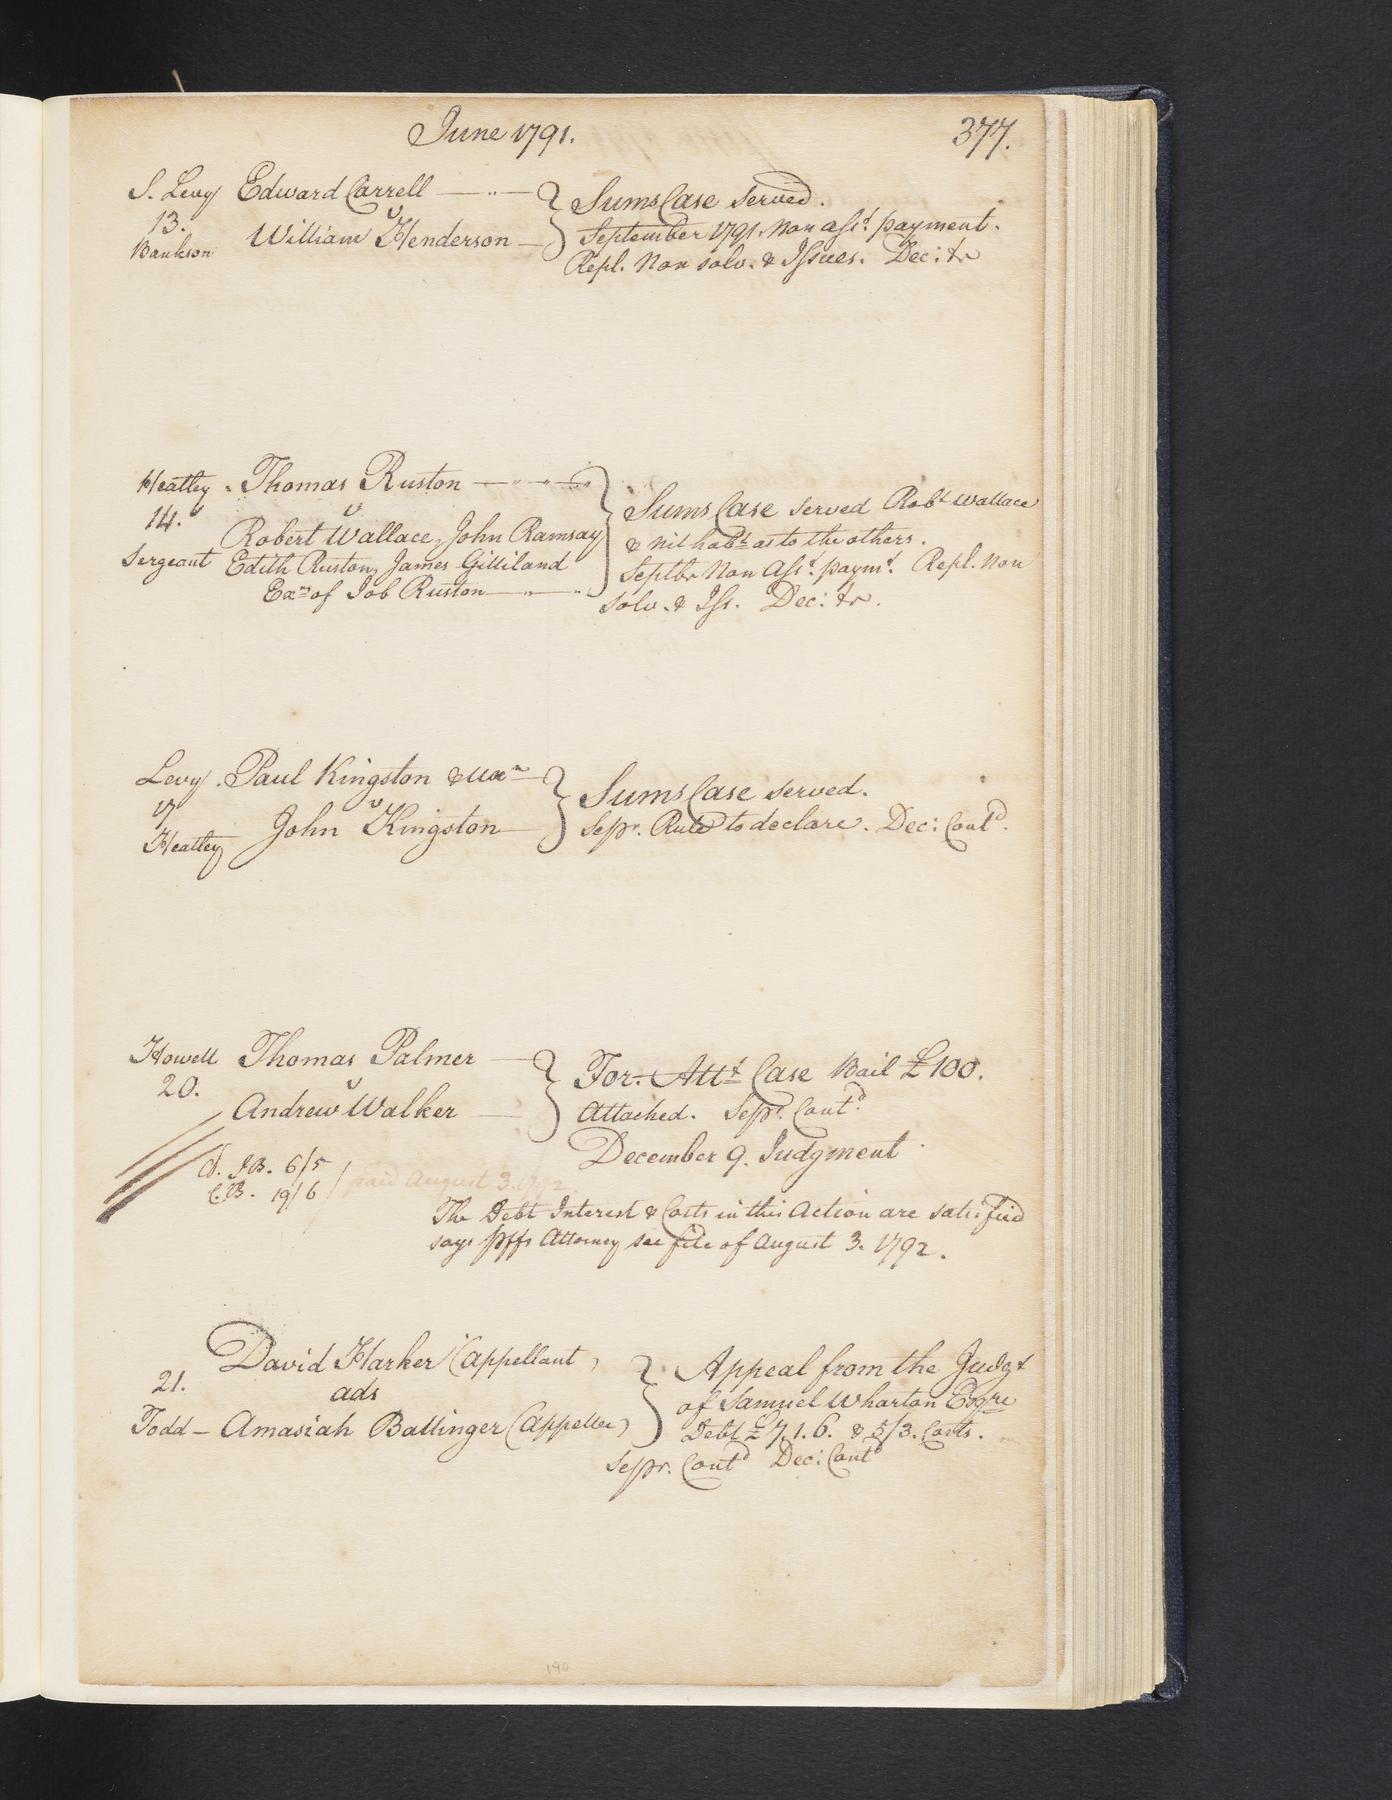 June 1791.
377.
S. Levy Edward Carrell
13. v
Bankson William Henderson
Sums Case served.
September 1791. Non asst. payment.
Repl. Non solv. & Issues. Dec: tr
Heatley. Thomas Ruston
14. v
Robert Wallace, John Ramsay
Sergeant Edith Ruston, James Gilliland
Exrs of Job Ruston
Sums Case served Robt Wallace
& nil habt as to the others.
Septbr Non Asst. paymt. Repl. Non
solv. & Iss. Dec: tr.
Levy. Paul Kingston & uxr
17 v
Heatley John Kingston
Sums Case served.
Sepr. Rule to declare. Dec: Contd.
Howell Thomas Palmer
20. v
Andrew Walker
For. Attt Case Bail £100.
Attached. Sepr. Contd
December 9. Judgment
J.B. 6/5
C.B. 19/6
paid August 3. 1792
The Debt Interest & Costs in this Action are satisfied
says plffs Attorney see file of August 3. 1792.
David Harker (Appellant)
21. ads
Todd – Amasiah Ballinger (Appellee)
Appeal from the Judgt
of Samuel Wharton Esqre
Debt £7.1.6. & 5/3. Costs.
Sepr. Contd Dec: Contd
190